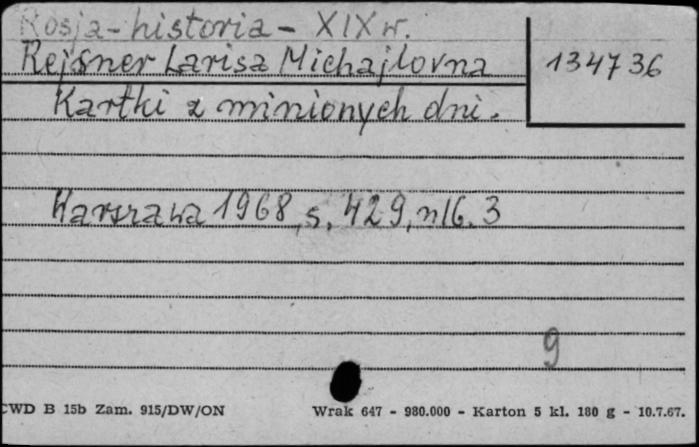 Rosja - historia - XIX w.
Rejsner Larisa Michajlovna
134736
Kartki z minionych dni.
Warszawa 1968, s. 429, nlb. 3
9
CWD B 15b Zam. 915/DW/ON
Wrak 647 - 980.000 - Karton 5 kl. 180 g - 10.7.67.